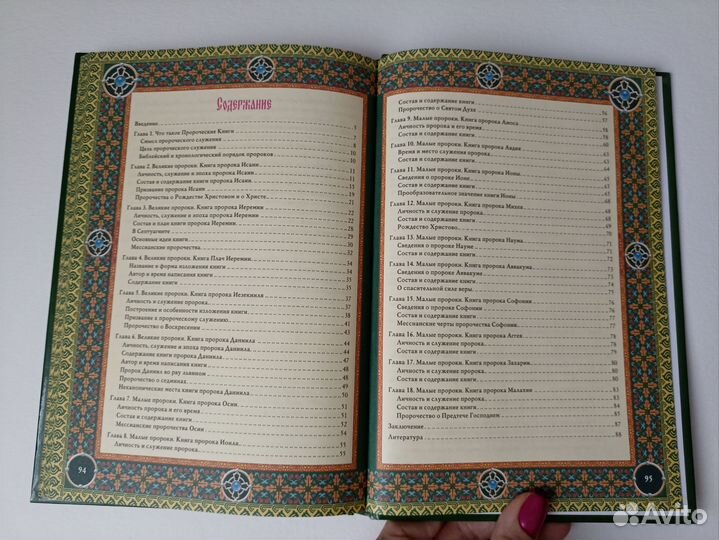 Содержание
Введение 5
Глава 1. Что такое Пророческие Книги 7
Смысл пророческого служения 8
Цель пророческого служения 10
Библейский и хронологический порядок пророков 10
Глава 2. Великие пророки. Книга пророка Исаии 11
Личность, служение и эпоха пророка Исаии 11
Состав и содержание книги пророка Исаии 13
Призвание пророка Исаии 19
Пророчество о Рождестве Христовом и о Христе 21
Глава 3. Великие пророки. Книга пророка Иеремии 22
Личность, служение и эпоха пророка Иеремии 22
Состав и план книги пророка Иеремии
В Септуагинте
Основные идеи книги
Мессианские пророчества
Глава 4. Великие пророки. Книга Плач Иеремии
Название и форма изложения книги
Автор и время написания книги
Содержание книги 35
Глава 5. Великие пророки. Книга пророка Иезекииля 37
Личность и служение пророка 38
Построение и особенности изложения книги 41
Призвание к пророческому служению 41
Пророчество о Воскресении 43
Глава 6. Великие пророки. Книга пророка Даниила 44
Личность, служение и эпоха пророка Даниила 44
Содержание книги пророка Даниила 47
Автор и время написания книги 48
Пророк Даниил во рву львином 48
Пророчество о седминах 49
Неканонические места книги пророка Даниила 50
Глава 7. Малые пророки. Книга пророка Осии 51
Личность пророка и его время 51
Состав и содержание книги 52
Мессианские пророчества Осии 54
Глава 8. Малые пророки. Книга пророка Иоиля 55
Личность и служение пророка 55
94
Состав и содержание книги
Пророчество о Святом Духе 56
Глава 9. Малые пророки. Книга пророка Амоса 57
Личность пророка и его время 58
Состав и содержание книги 58
Глава 10. Малые пророки. Книга пророка Авдия 60
Время и место служения пророка 63
Состав и содержание книги 63
Глава 11. Малые пророки. Книга пророка Ионы 64
Сведения о пророке Ионе 65
Состав и содержание книги 65
Прообразовательное значение книги Ионы 66
Глава 12. Малые пророки. Книга пророка Михея 68
Личность и служение пророка 68
Состав и содержание книги 68
Рождество Христово 69
Глава 13. Малые пророки. Книга пророка Наума 71
Сведения о пророке Науме 71
Состав и содержание книги 72
Глава 14. Малые пророки. Книга пророка Аввакума 73
Сведения о пророке Аввакуме 73
Состав и содержание книги 74
О спасительной силе веры 75
Глава 15. Малые пророки. Книга пророка Софонии 75
Сведения о пророке Софонии 76
Состав и содержание книги 77
Мессианские черты пророчества Софонии 77
Глава 16. Малые пророки. Книга пророка Аггея 78
Личность и служение пророка 78
Состав и содержание книги 79
Глава 17. Малые пророки. Книга пророка Захарии 80
Личность и служение пророка 80
Состав и содержание книги 80
Глава 18. Малые пророки. Книга пророка Малахии 83
Личность и служение пророка 83
Состав и содержание книги 84
Пророчество о Предтече Господнем 85
Заключение 87
Литература 88
95
Avito